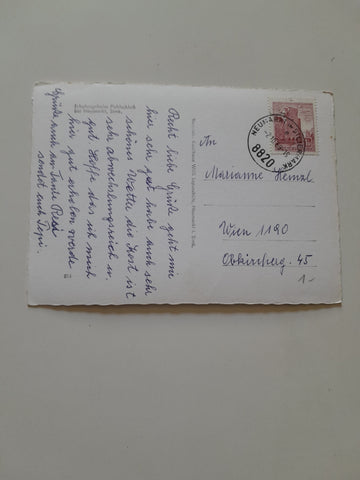 Erholungsheim Pichlschloß
bei Neumarkt, Stmk.
Recht liebe Grüße geht mir
hier sehr gut habe auch sehr
schönes Wetter die Kost ist
sehr abwechslungsreich u.
gut. Hoffe das ich mich
hier gut erholen werde
Grüße auch an Tante Resi
sendet euch Pepi.
NEUMARKT
8820
An
Marianne Heinzl
Wien 1190
Obkircherg. 45
1-